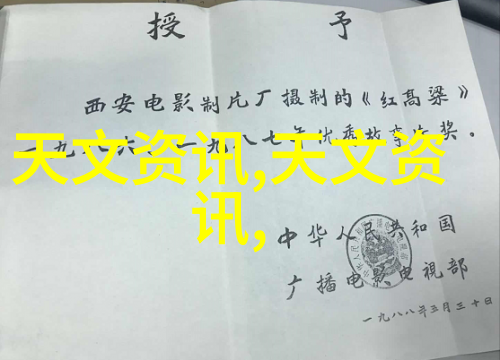 授予
西安电影制片厂摄制的《红高粱》
一九八六、一九八七年优秀故事片奖。
天文资讯,天文资
讯,
中华人民共和国
广播电影电视部
一九八八年三月三十日